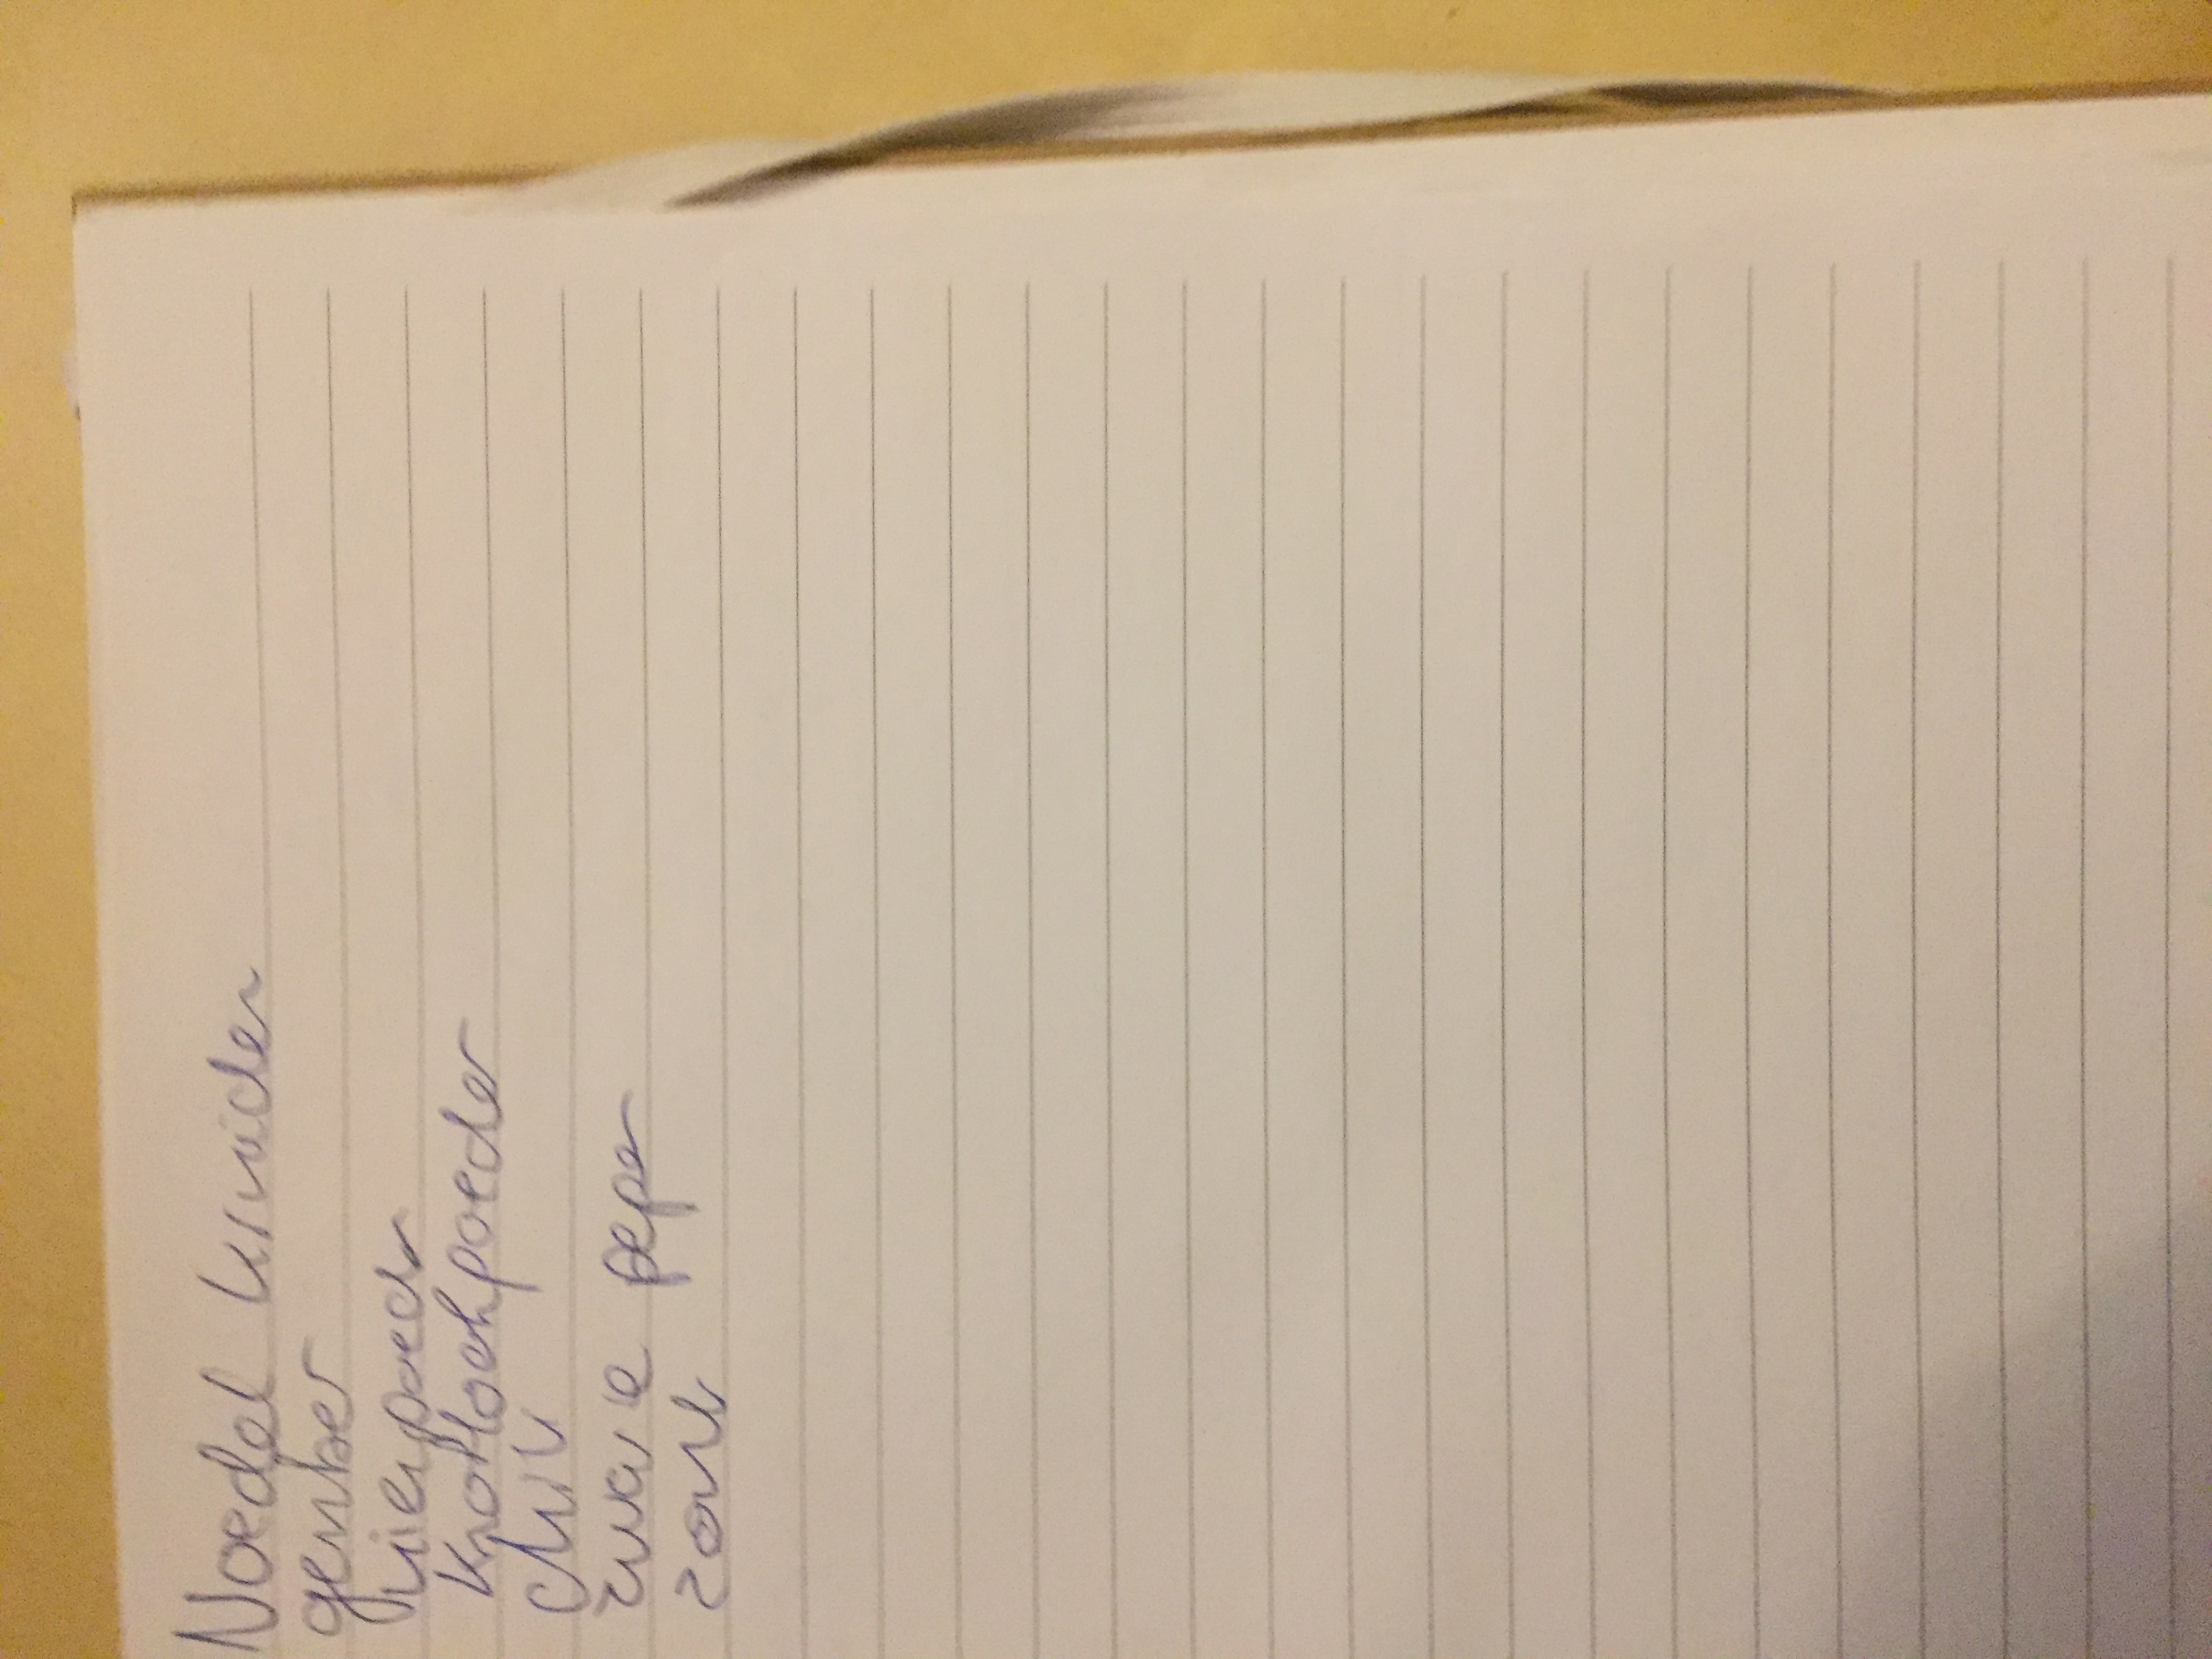 Noedel kruiden
gember
uienpoedr
Knoflochpoeder
chili
zwarte peper
zout